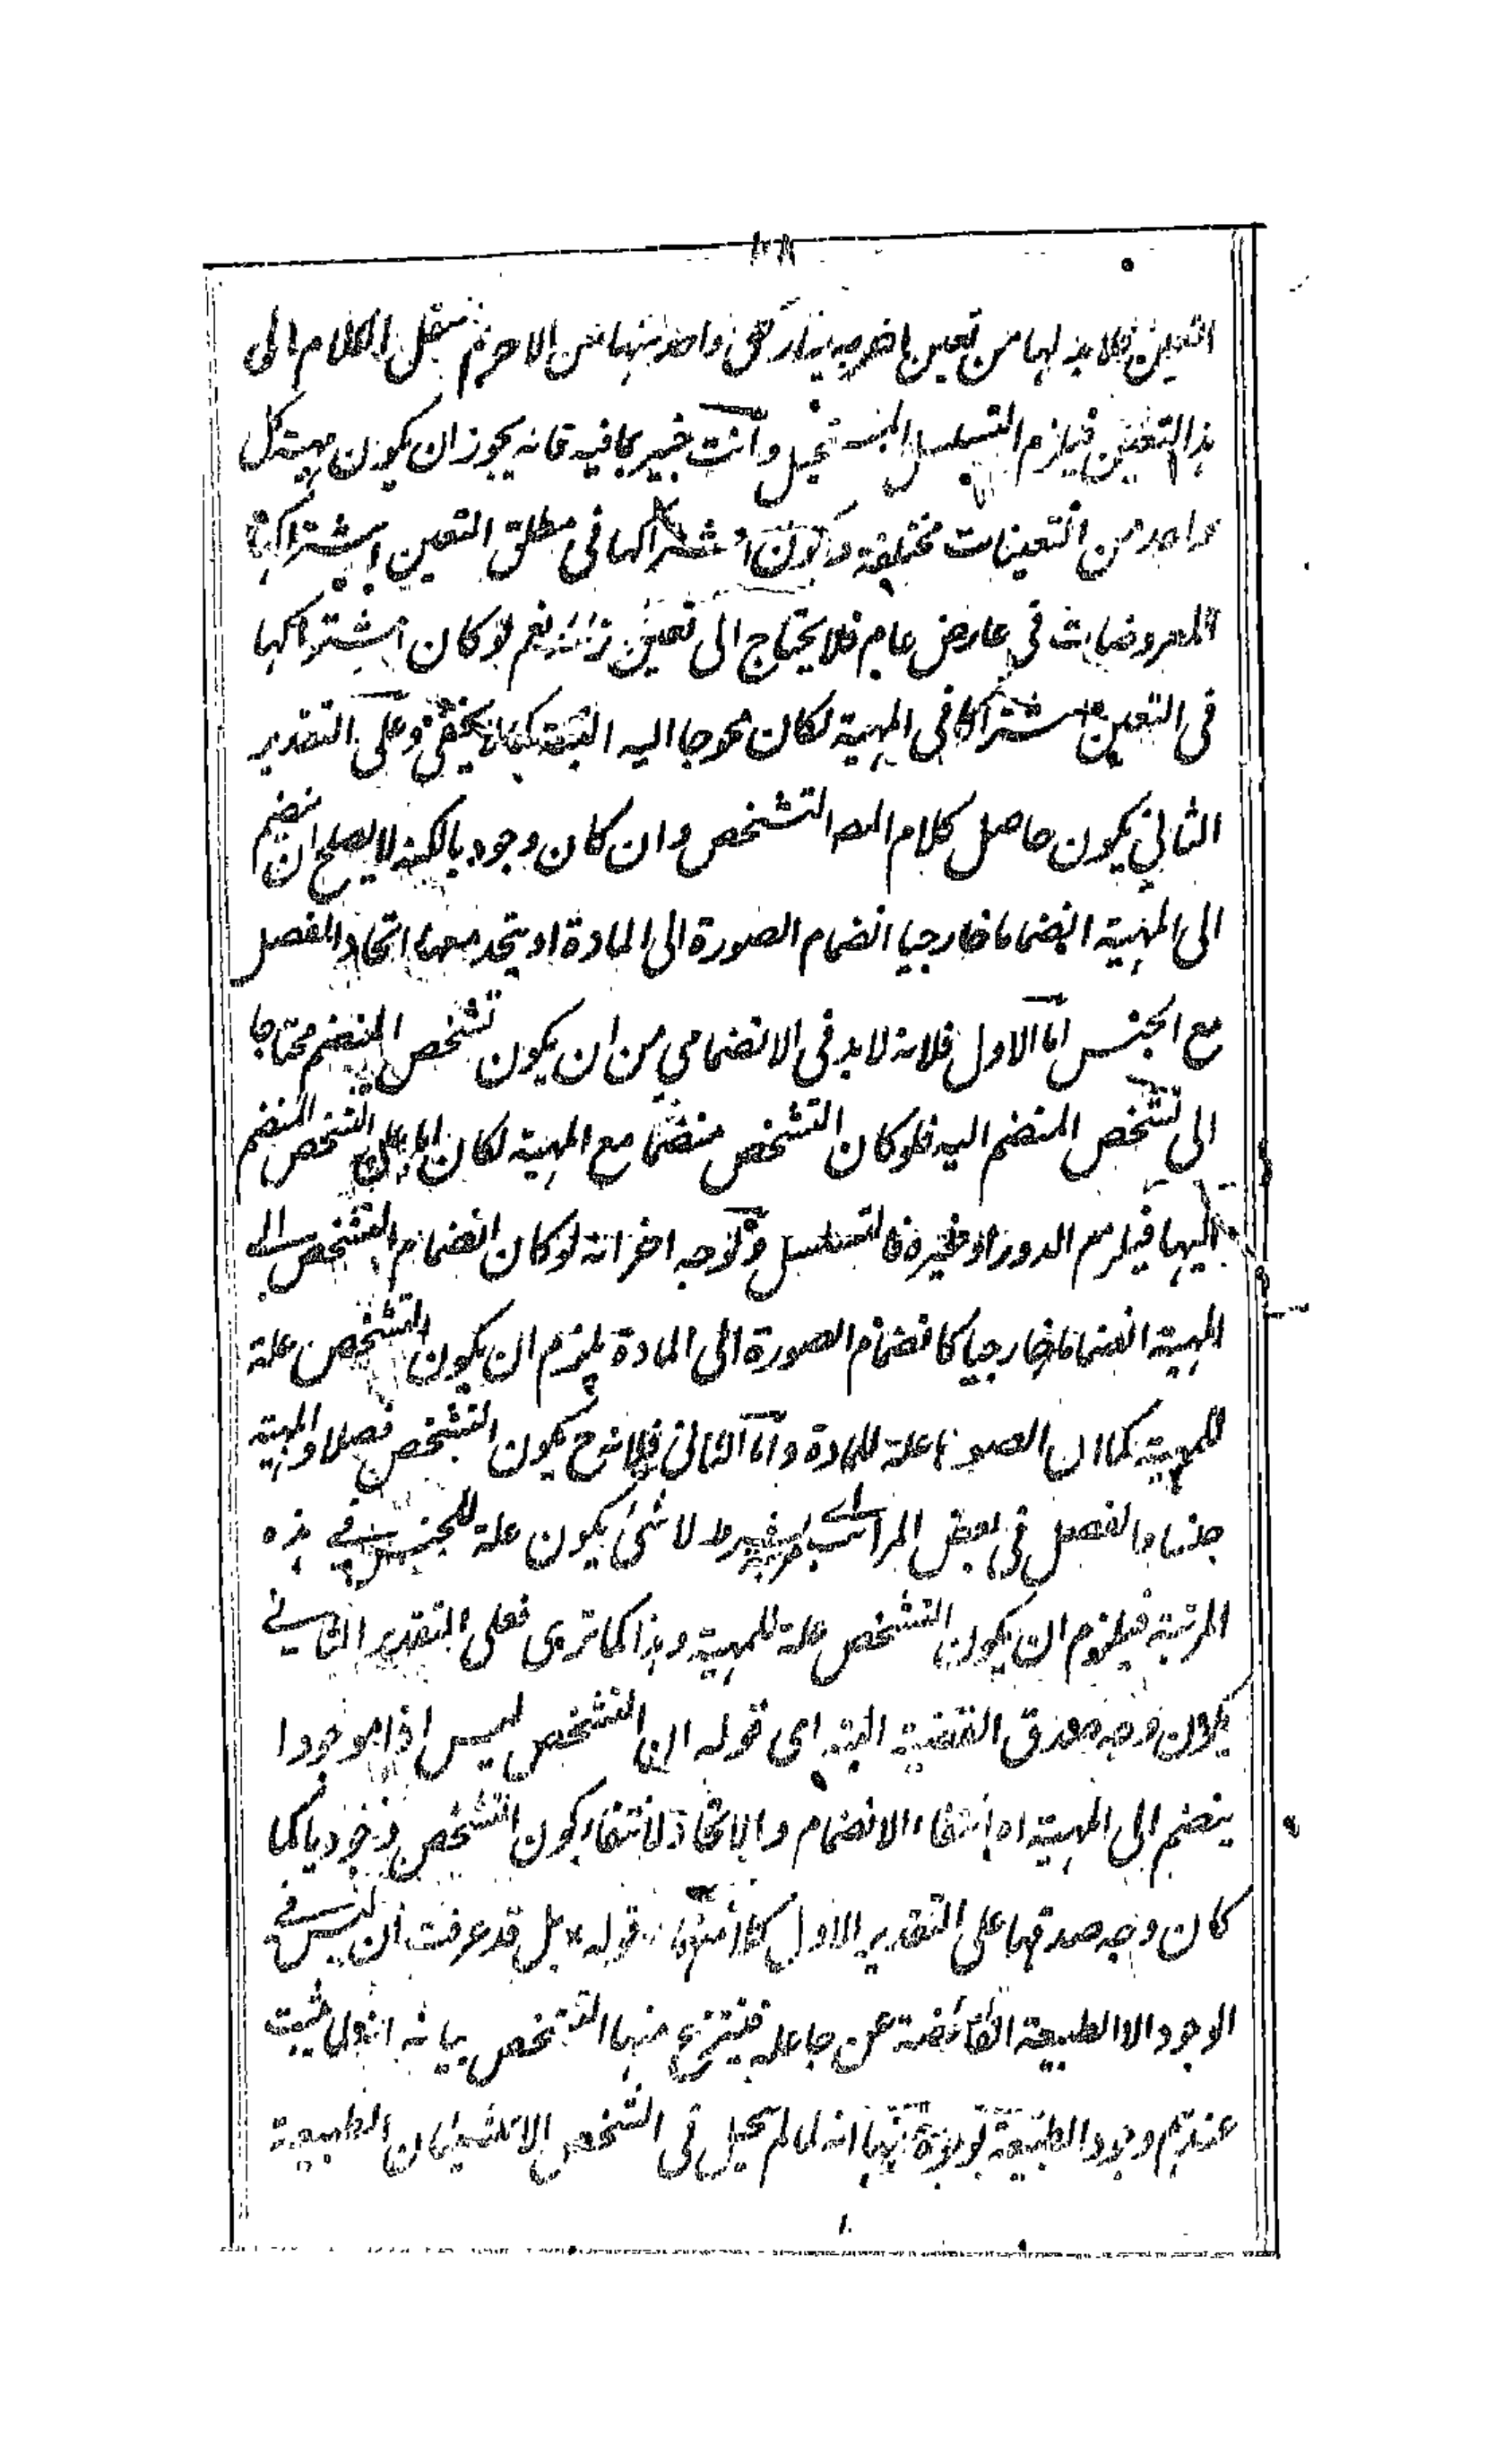 ١٠٨
التعين فلابد لها من تعين اخر به يمتاز كل واحد منها عن الاخر ثم ننقل الكلام الى
هذا التعين فيلزم التسلسل المستحيل وانت خبير بما فيه فانه يجوز ان يكون مهية كل
واحد من التعينات مختلفة ويكون اشتراكها فى مطلق التعين اشتراك
المعروضات فى عارض عام فلا يحتاج الى تعين زائد نعم لو كان اشتراكها
فى التعين اشتراكا فى المهية لكان محوجا اليه البتة كما لا يخفى وعلى التقدير
الثانى يكون حاصل كلام المصـ التشخص وان كان وجوديا لكنه لا يصلح ان ينضم
الى المهية انضماما خارجيا انضمام الصورة الى المادة او يتحد معها اتحاد الفصل
مع الجنس اما الاول فلانه لابد فى الانضمامى من ان يكون تشخص المنضم محتاجا
الى تشخص المنضم اليه فلو كان التشخص منضما مع المهية لكان التشخص المنضم
اليها فيلزم الدور او غيره فالتسلسل وتوجه اخر انه لو كان انضمام التشخص الى
المهية انضماما خارجيا كانضمام الصورة الى المادة يلزم ان يكون التشخص علة
للمهية كما ان الصورة علة للمادة واما الثانى فلانه ح يكون التشخص فصلا والمهية
جنسا والفصل فى بعض المراتب اى مرتبة بشرط لا شئ يكون علة للجنس فى هذه
المرتبة فيلزم ان يكون التشخص علة للمهية وهذا كما ترى فعلى التقدير الثانى
يكون وجه صدق القضية البتة اى قوله ان التشخص ليس اذا موجودا
ينضم الى المهية اه انتفاء الانضمام والاتحاد لانتفاء كون التشخص وجوديا كما
كان وجه صدقها على التقدير الاول كلامنهما قوله بل قد عرفت ان ليس فى
الوجود الا الطبيعة الفائضة عن جاعله فينتزع منها التشخص بيانه انه لما ثبت
عندهم وجود الطبيعة انه لما لم يحيل فى الشخص الا الطبيعة